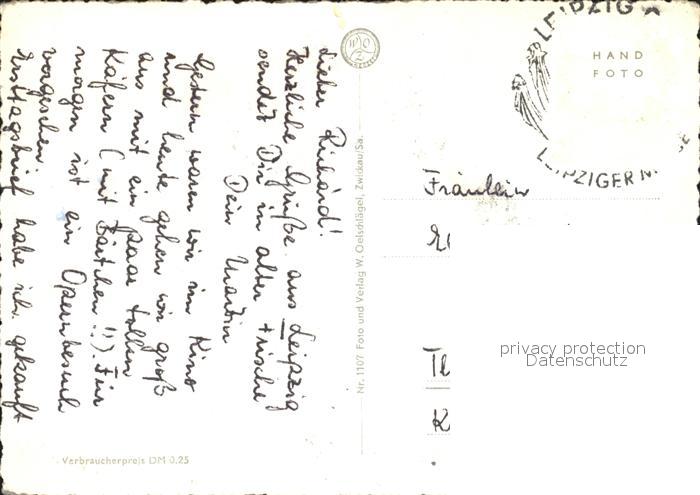 Lieber Richard!
Herzliche Grüße aus Leipzig
sendet Dir in alter Frische
Dein Martin
Gestern waren wir im Kino
und heute gehen wir groß
aus mit ein paar tollen
Käfern (mit Bärtchen!!). Für
morgen ist ein Opernbesuch
vorgesehen.
habe ich gekauft
Nr. 1107 Foto und Verlag W. Oelschlägel, Zwickau/Sa.
Verbraucherpreis DM 0.25
LEIPZIG
LEIPZIGER M
HAND
FOTO
Fräulein
privacy protection
Datenschutz
K